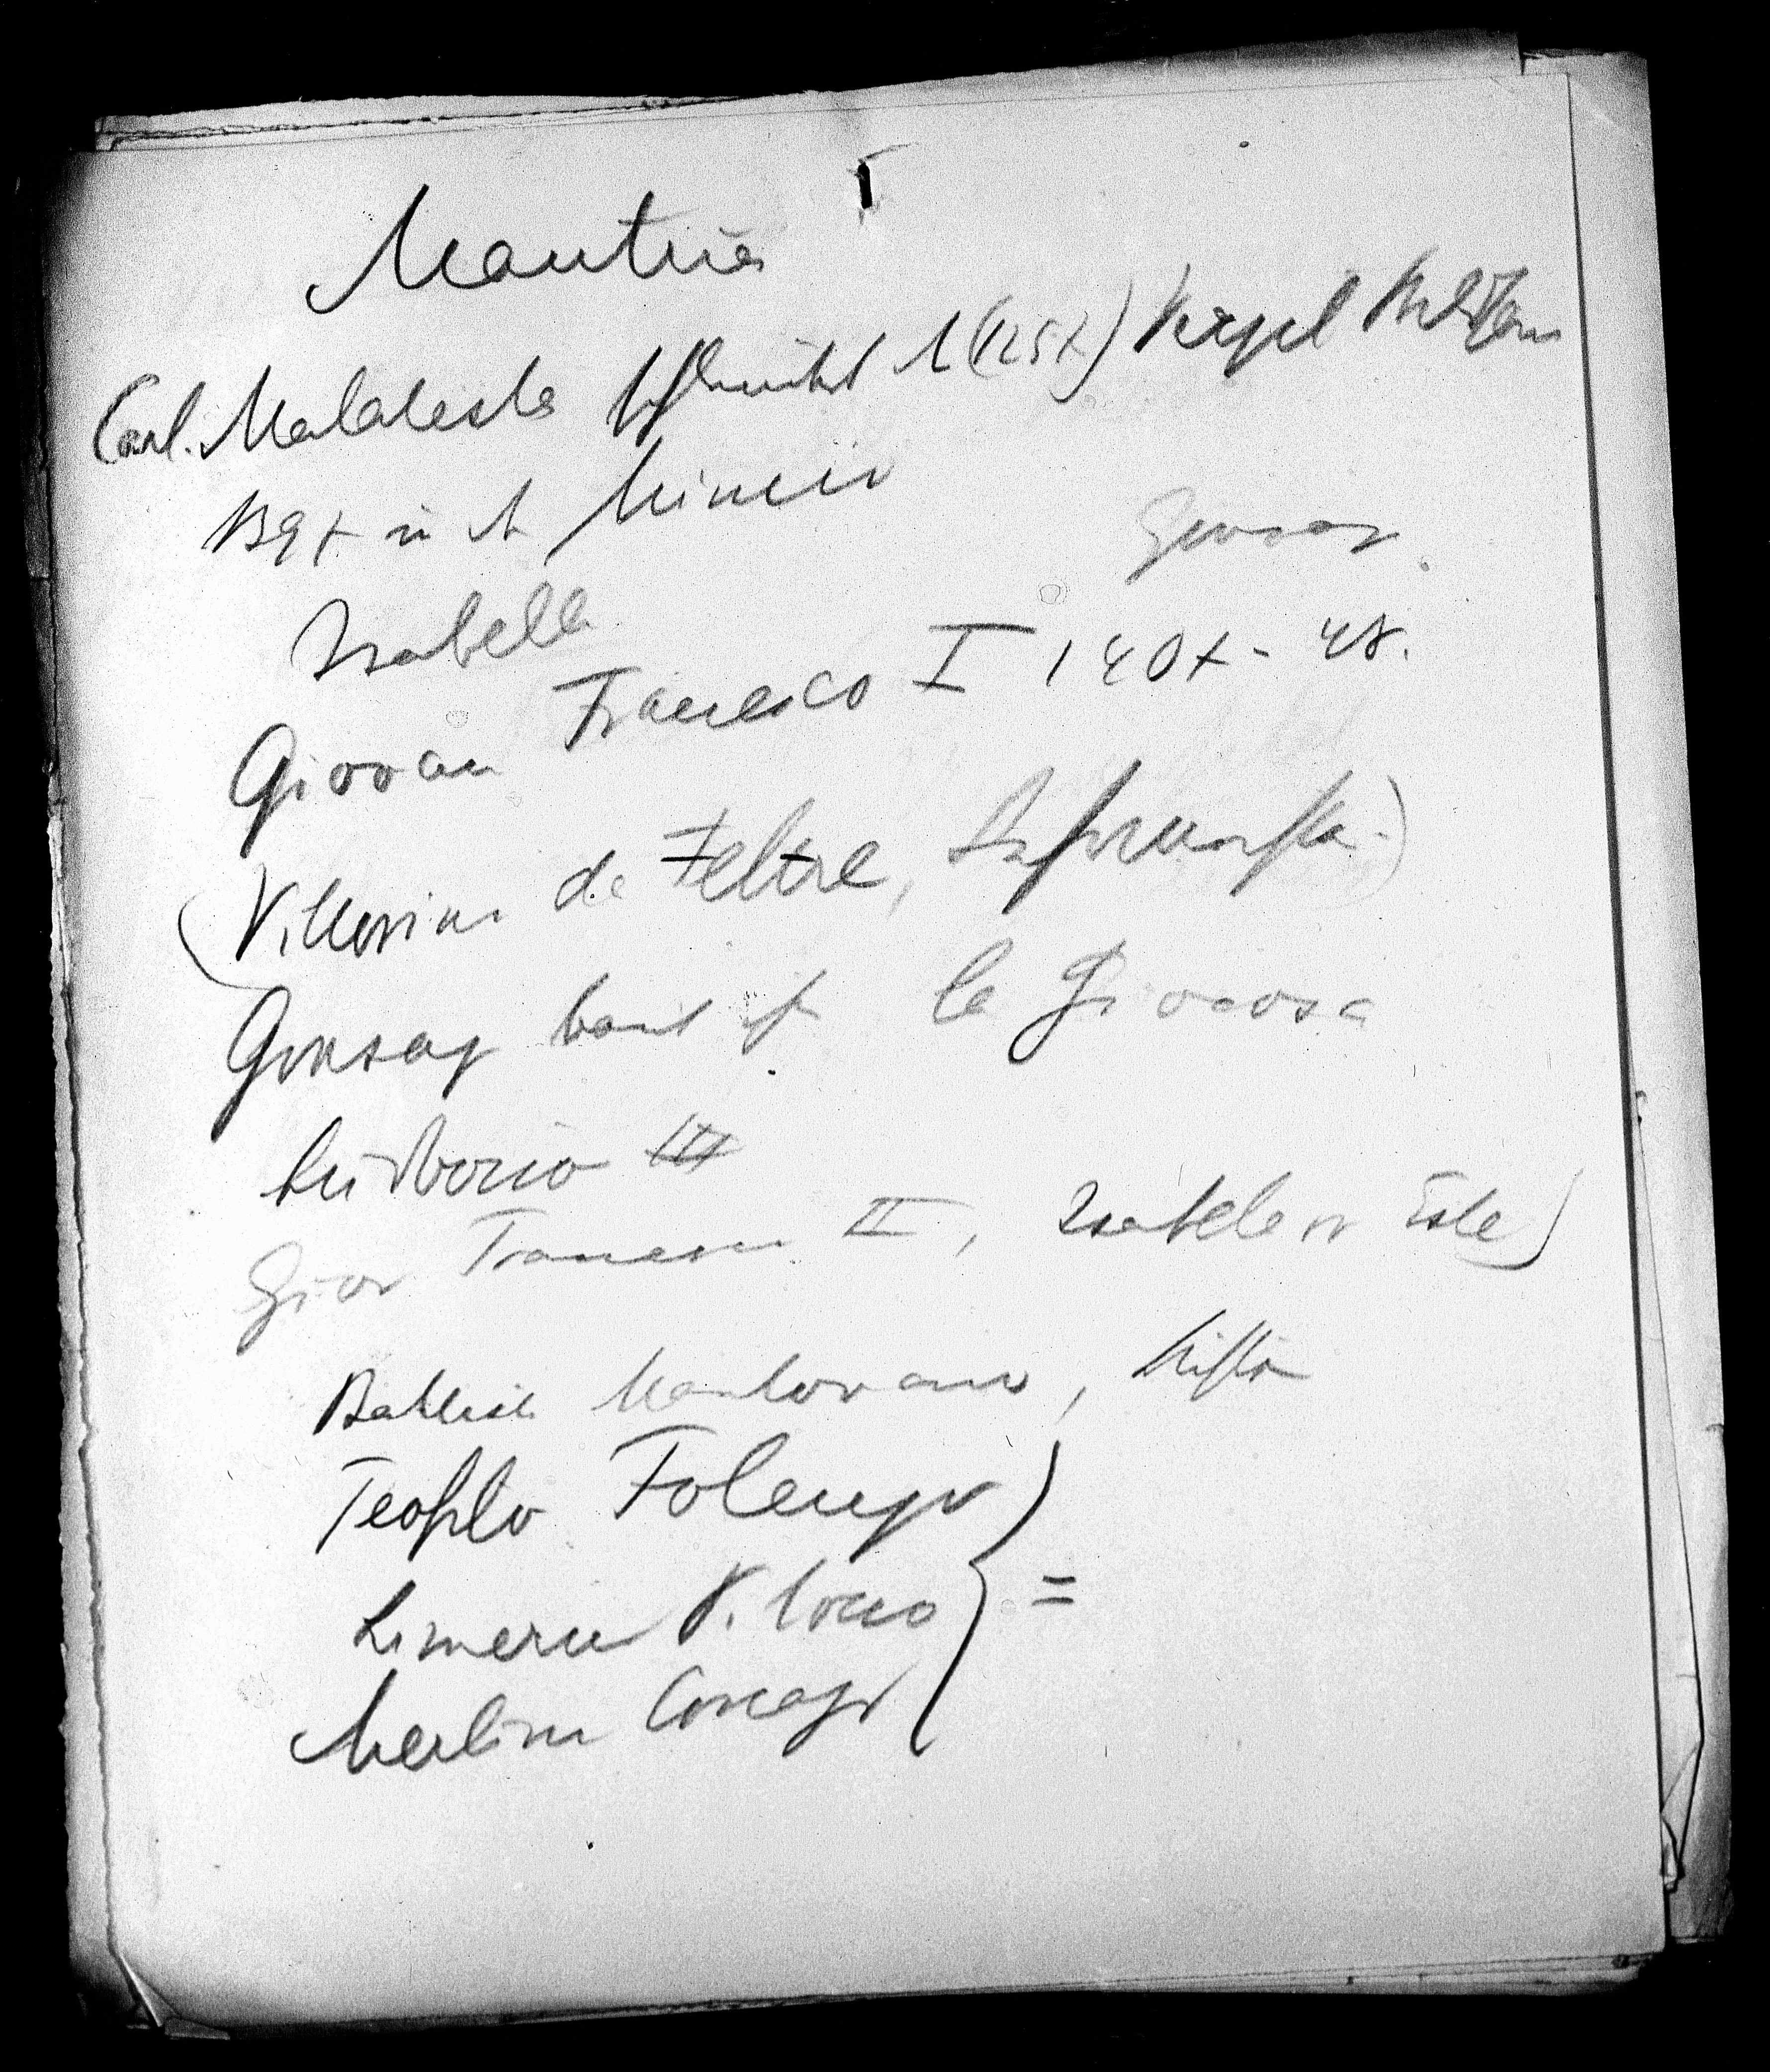 Mantua
Carl. Malatesta 1 (1257) Vergil
1397 in d. Mincio
Gonzag.
Isabella
Giovan Francesco I 1407-48.
(Vittorino da Feltre,
Gonzag baut la Giocosa
Ludovico III
Giov Francesco II, Isabella v Este)
Battista Mantovano,
Teofilo Folengo)
Limerno Pitocco } =
Merlino Cocajo